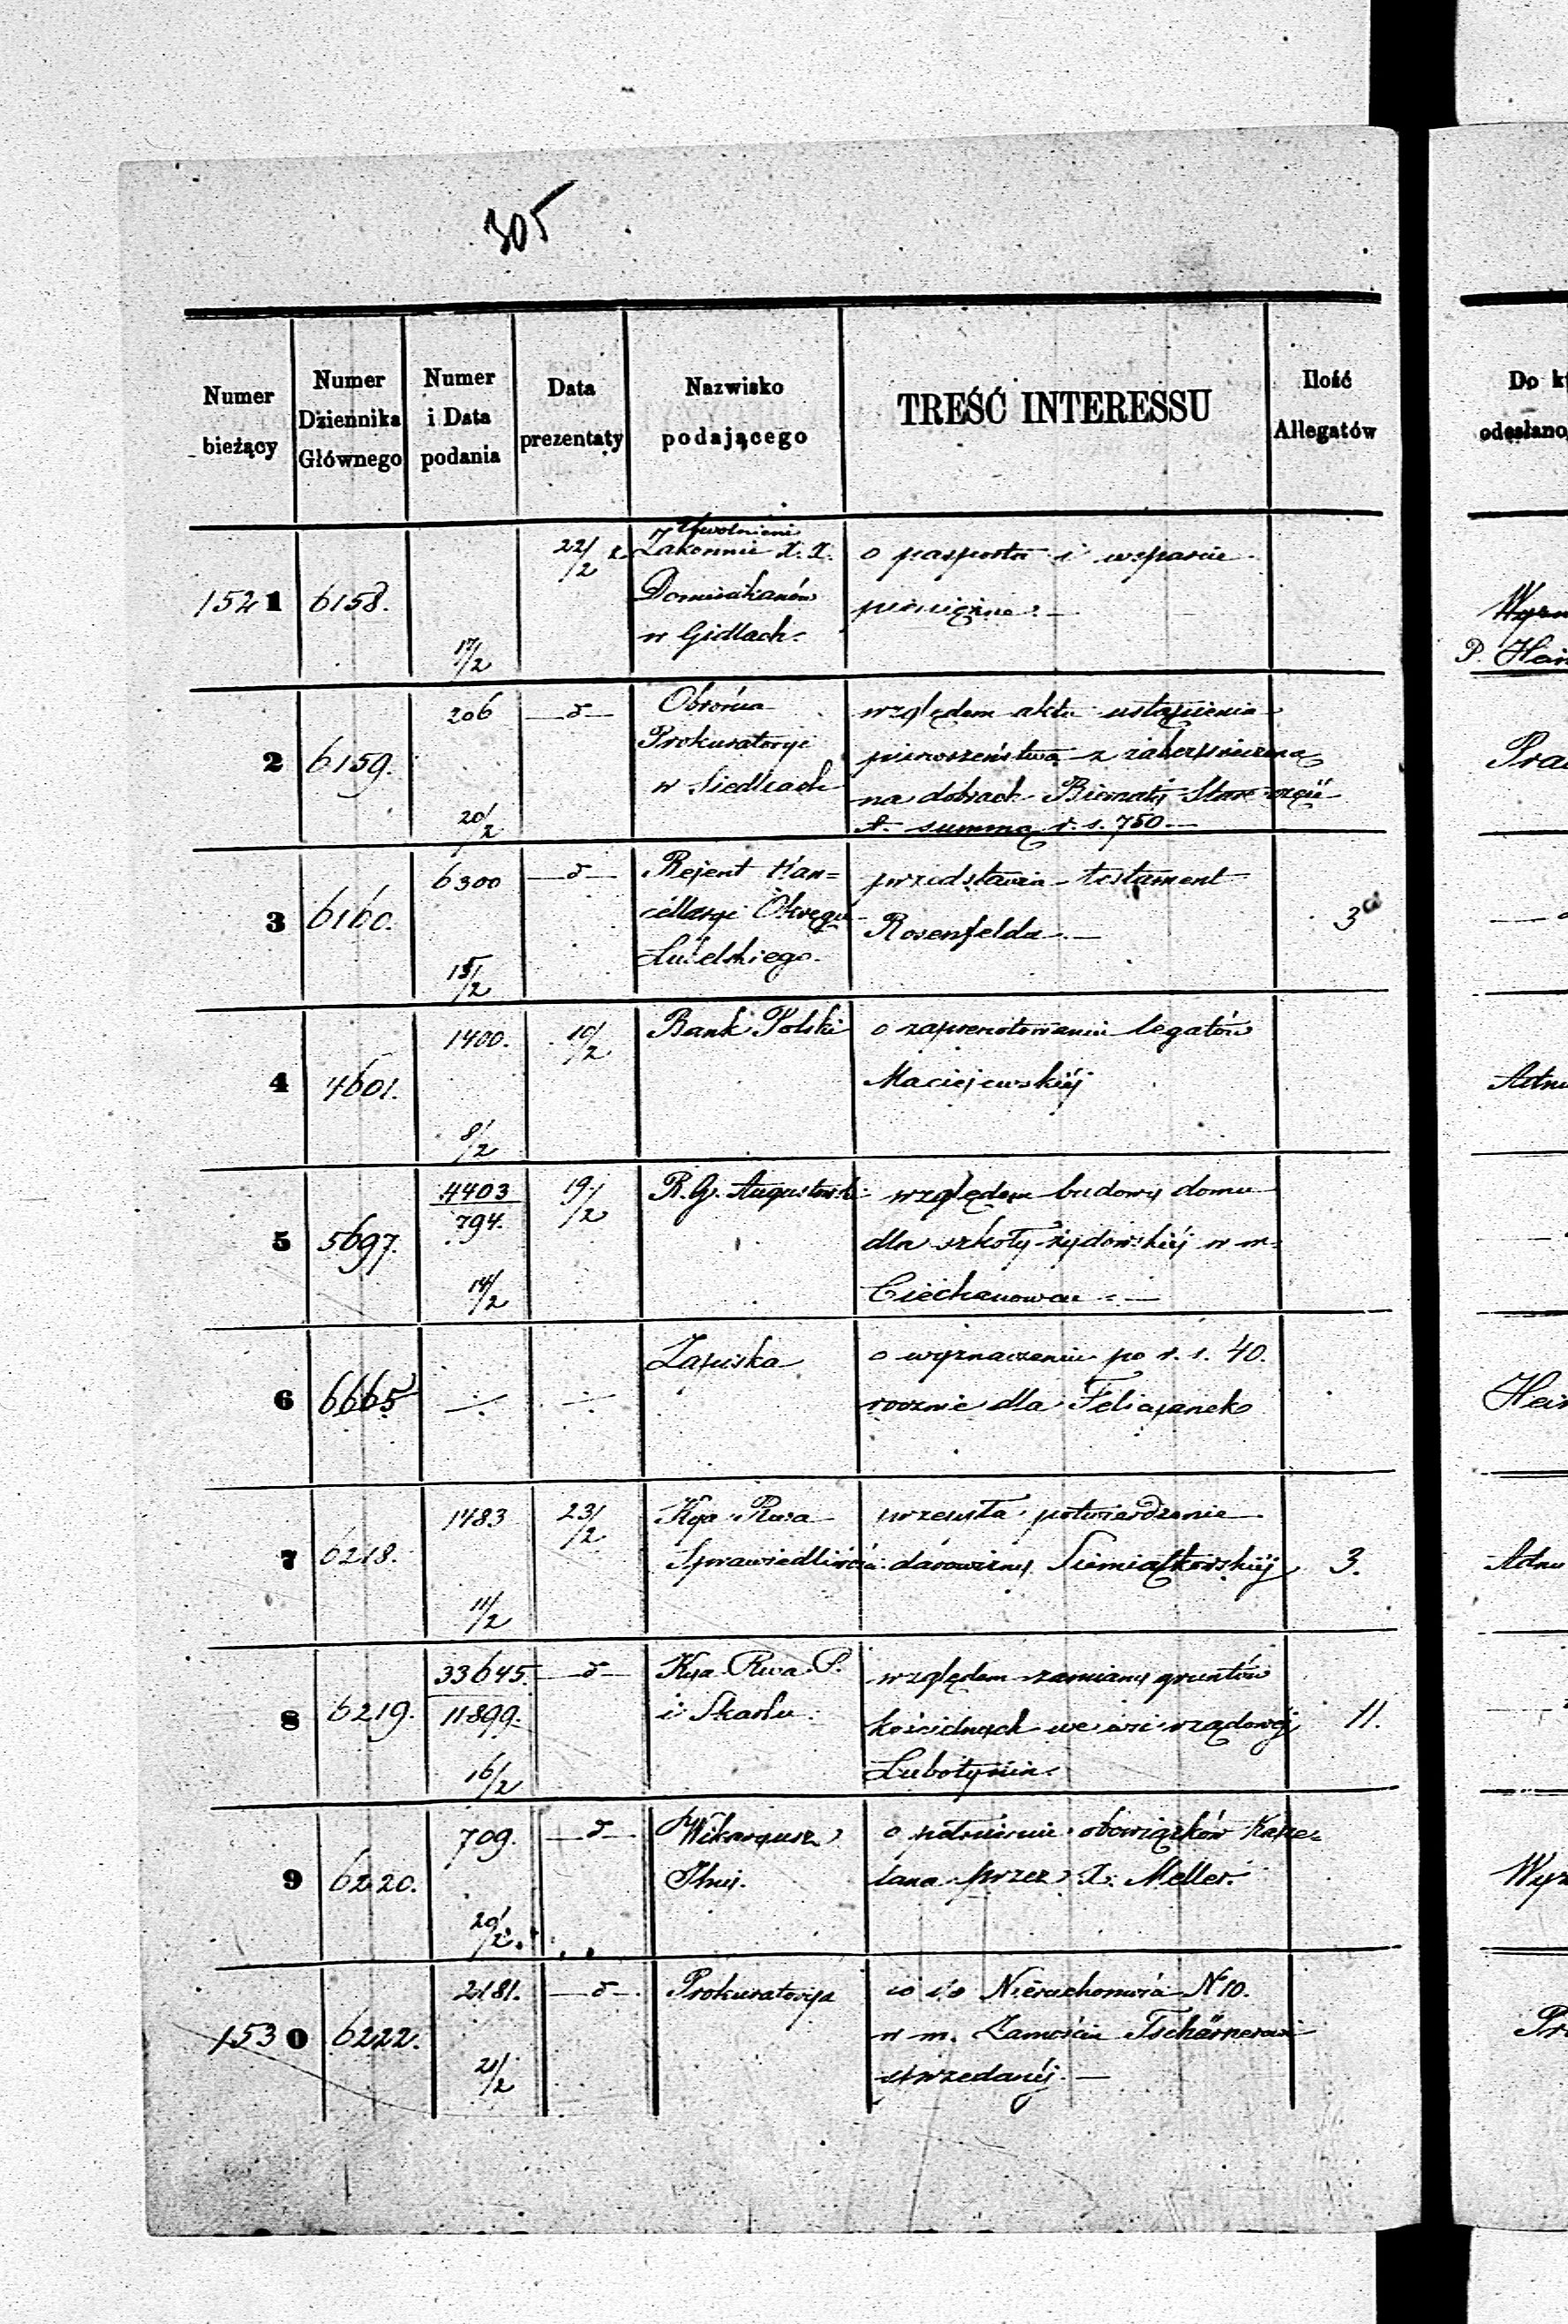 305
Numer bieżący
Numer Dziennika Głównego
Numer i Data podania
Data prezentaty
Nazwisko podającego
TREŚĆ INTERESSU
Ilość Allegatów
Do k
odesłano,
1521 6158. 17/2 22/2
Uwolnieni
Zakonnic X. X.
Dominikanów
w Gidlach.
o pasporta i wsparcie
pieniężne. —
P. Hein
2 6159. 206 20/2 —d—
Obrońca
Prokuratoryi
w Siedlcach
względem aktu ustąpienia
pierwszeństwa z zabezpieczoną
na dobrach Biernaty Stare
summą r. s. 750 —
3 6160. 6300 15/2 —d—
Rejent Kan=
cellaryi Okręgu
Lubelskiego.
przedstawia testament
Rosenfelda. —
3
4 4601. 1400. 8/2 10/2
Bank Polski
o zaprenotowanie legatów
Maciejewskiéj
5 5697. 4403
794. 14/2 19/2
R. G. Augustowski
względem budowy domu
dla szkoły żydowskiéj w m.
Ciechanowcu. —
6 6665
Zapiska
o wyznaczeniu po r. s. 40.
rocznie dla Felicyanek
Hein
7 6218. 1483 11/2 23/2
Kya Rwa
Sprawiedliwości
przesyła potwierdzenie
darowizny Siemiątkowskiéj
3.
8 6219. 33645.
11899. 16/2 —d—
Kya Rwa P.
i Skarbu.
względem zamiany gruntów
kościelnych we wsi rządowéj
Lubotynie.
11.
9 6220. 709. 20/2 —d—
Wikaryusz
o pełnienie obowiązków Kape=
lana przez X. Meller.
1530 6222. 2181. 21/2 —d—
Prokuratorya
co do Nieruchomości N 10.
w m. Zamościu Tscharnerowi
sprzedanéj. —